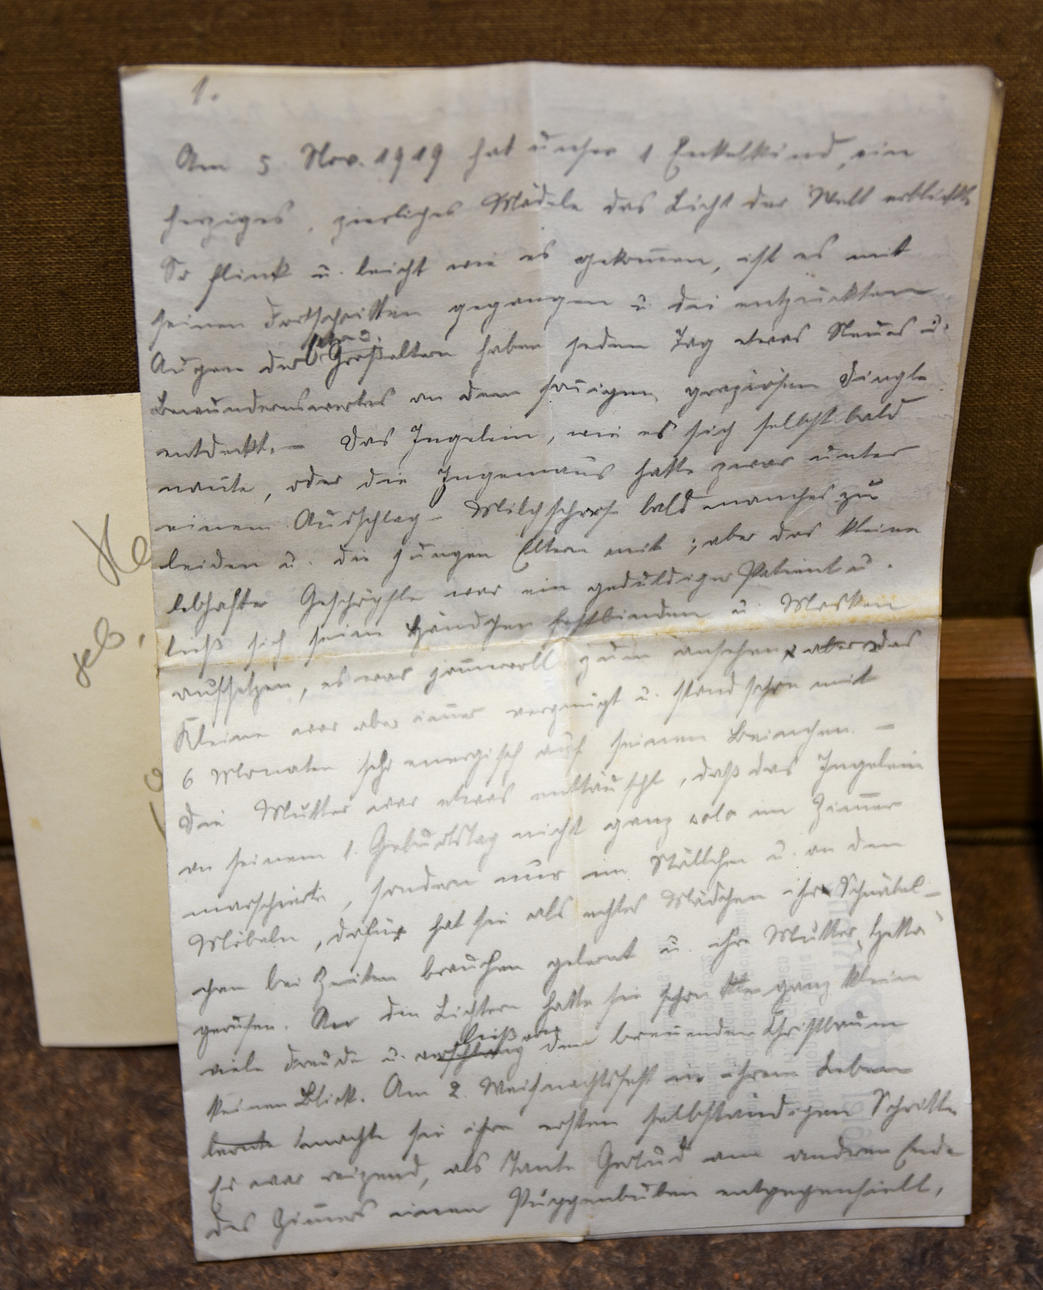 1.
Am 5 Nov. 1919 hat unser 1 Enkelkind, ein
herziges, zierliches Mädele das Licht der Welt erblickt
So flink u. leicht wie es gekommen, ist es mit
seinen Fortschritten gegangen u. die entzückten
Augen der Großeltern haben jeden Tag etwas Neues u.
Bewundernswertes an dem sonnigen, graziösen Dingle
entdeckt. – Das Ingelein, wie es sich selbst bald
nannte, oder die Ingemaus hatte zwar unter
einem Ausschlag – Milchschorf bald manches zu
leiden u. die jungen Eltern mit; aber das kleine
lebhafte Geschöpfle war ein geduldiger Patient u.
ließ sich seine Händchen festbinden u. Masken
aufsetzen, es war jammervoll zum ansehen, aber das
Kleine war aber immer vergnügt u. stand schon mit
6 Monaten sehr energisch auf seinen Beinchen. –
Die Mutter war etwas enttäuscht, daß das Ingelein
an seinem 1. Geburtstag nicht ganz solo im Zimmer
marschierte, sondern nur im Ställchen u. an den
Möbeln, dafür hat sie als echtes Mädchen ihr Schnäbel-
chen bei Zeiten brauchen gelernt u. ihre Mutter,
gerufen. An den Lichtern hatte sie schon ganz klein
viele Freude u. ließ von dem brennenden Christbaum
keinen Blick. Am 2. Weihnachtsfest in ihrem Leben
lernte machte sie ihre ersten selbständigen Schritte
Es war reizend, als Tante Gertrud am anderen Ende
des Zimmers einen Puppenbuben entgegenhielt,
geb.